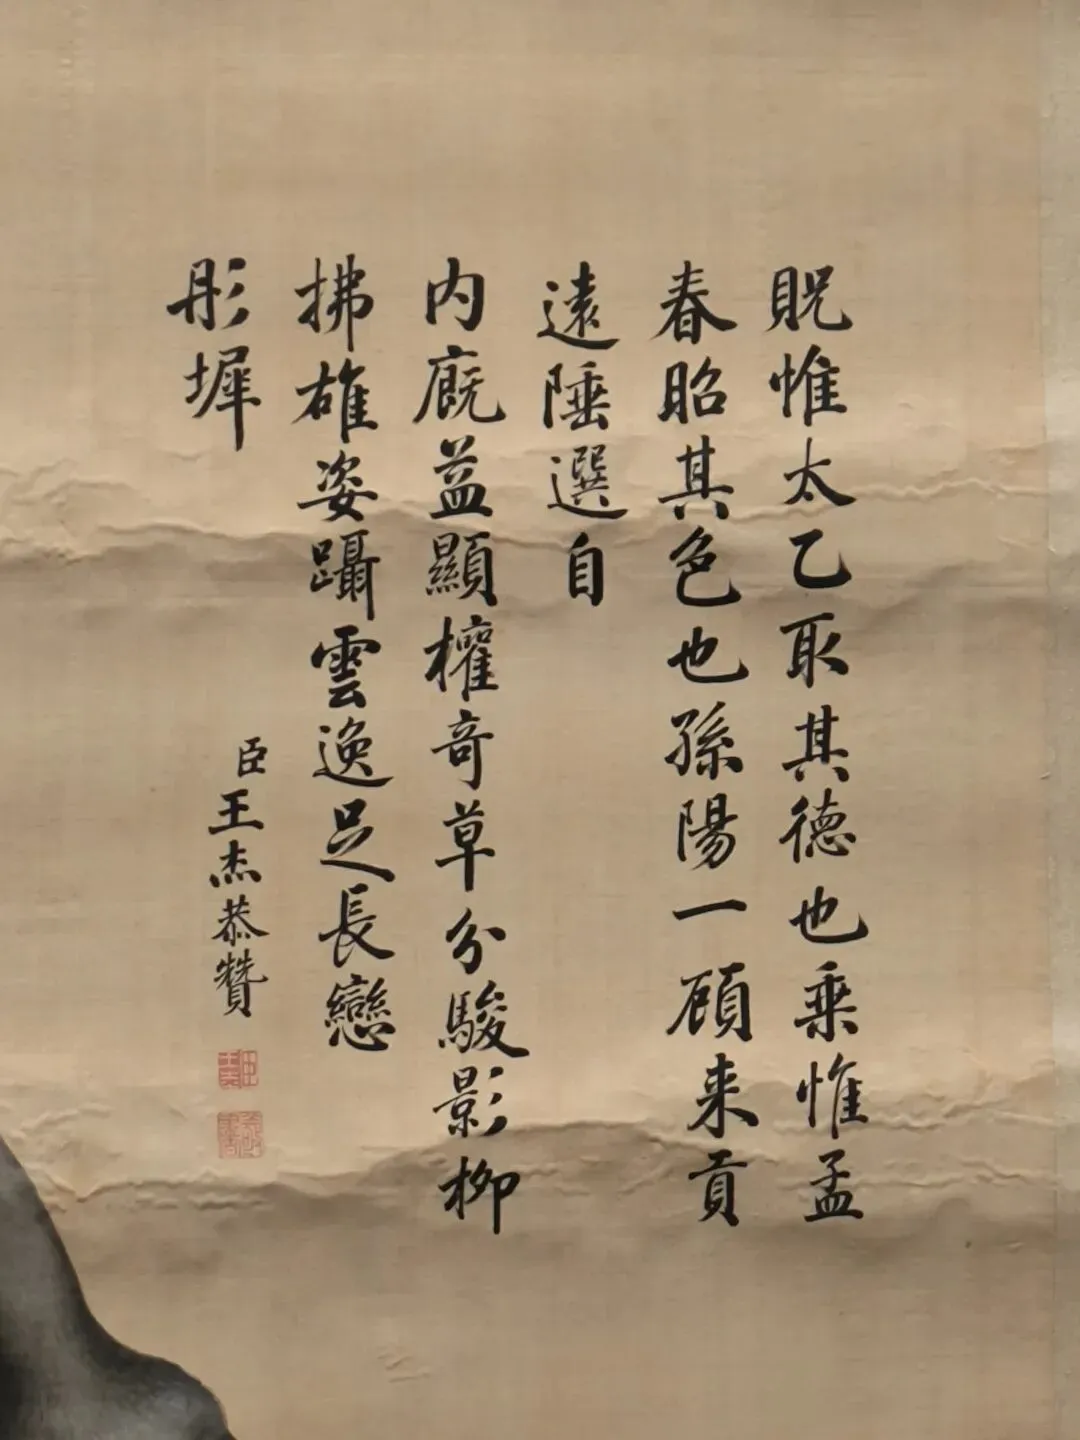 貺惟太乙取其德也乗惟孟
春昭其色也孫陽一顧来貢
遠陲選自
内廐益顯權竒草分駿影柳
拂雄姿躡雲逸足長戀
彤墀
臣王杰恭贊